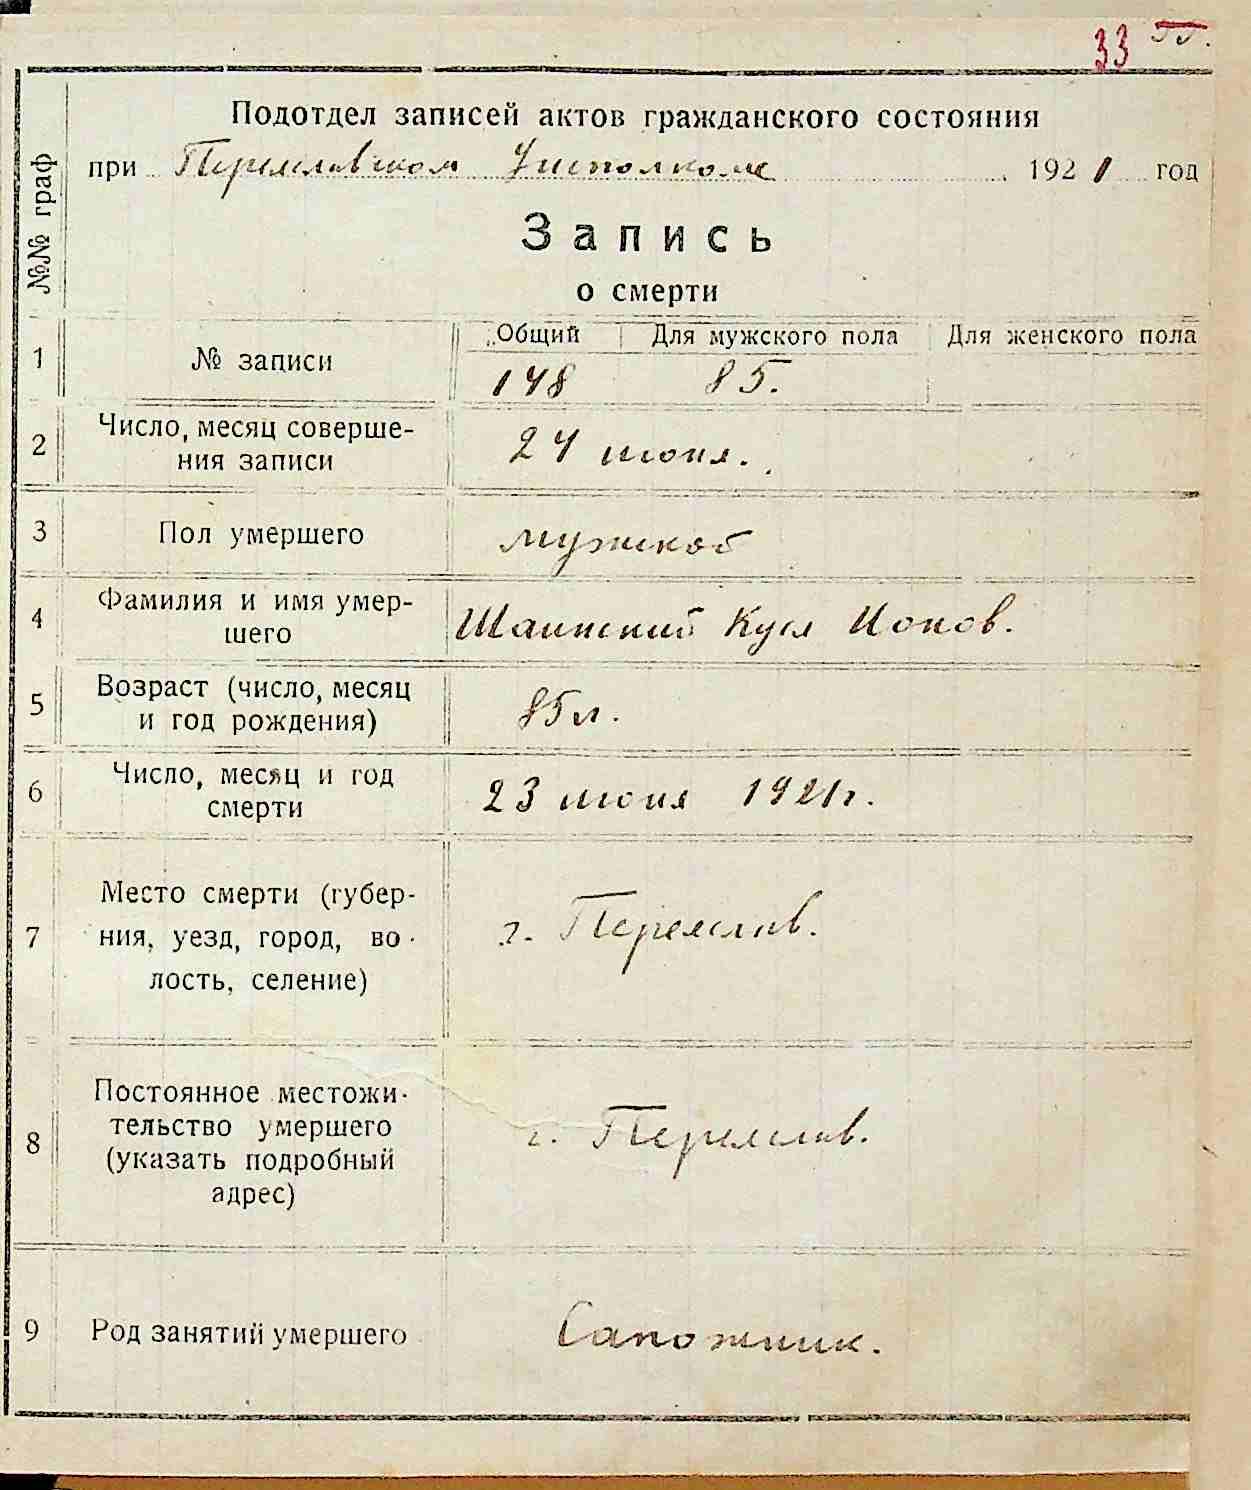 33
№№ граф
Подотдел записей актов гражданского состояния
при Переяславском Уисполкоме 1921 год
Запись
о смерти
1 № записи Общий Для мужского пола Для женского пола
148 85.
2 Число, месяц соверше-
ния записи 24 июня.
3 Пол умершего мужской
4 Фамилия и имя умер-
шего Шаинский Ионов.
5 Возраст (число, месяц
и год рождения) 85 л.
6 Число, месяц и год
смерти 23 июня 1921 г.
7 Место смерти (губер-
ния, уезд, город, во-
лость, селение) г. Переяслав.
8 Постоянное местожи-
тельство умершего
(указать подробный
адрес) г. Переяслав.
9 Род занятий умершего Сапожник.